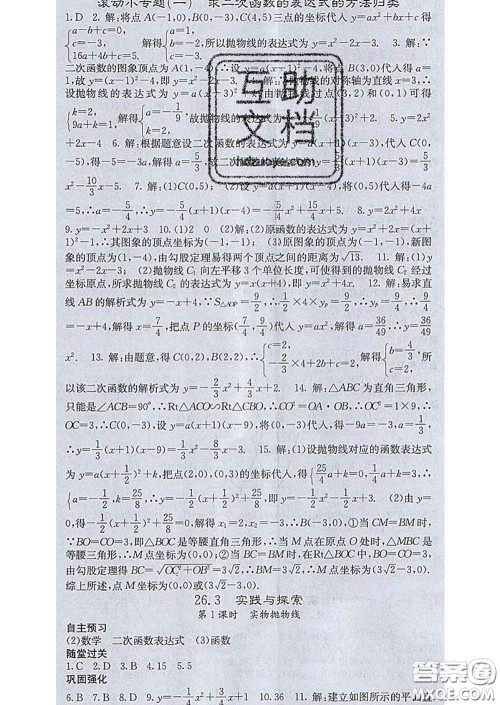 滚动小专题(一) 求二次函数的表达式的方法归类
1. D 2. 解:将点 A(-1,0),B(0,-3),C(4,5)三点的坐标代入 y=ax²+bx+c 得
{a-b+c=0, c=-3, 16a+4b+c=5. 解得{a=1, b=-2, c=-3. 所以抛物线的表达式为 y=x²-2x-3.
二次函数的图象顶点为 A(1,-4),∴设 y=a(x-1)²-4,将点 B(3,0)代入得 a=
1,故 y=(x-1)²-4,即 y=x²-2x-3. 抛物线的对称轴为直线 x=3,∴
设抛物线的表达式为 y=a(x-3)²+k. 过点(2,0)和(0,1)可得
{k=2, 9a+k=1, 解得{a=-1/9, k=2, 故抛物线
2x-4 6. 解:根据题意设二次函数的表达式为 y=a(x+1)(x-3),代入 C(0,
-5),得-5=-3a,解得 a=5/3, 故二次函数 (x+1)(x-3)=5/3
x²-10/3x-5. 7. 解:(1)(0,5); (2)设 y=a(x+1)(x-4),将(0,5)代入得-4a
=5,∴a=-5/4,∴y=-5/4(x+1)(x-4)=-5/4x²+15/4x+5. 8. y=2(x+1)²-2
9. y=-x²-2x+3 10. (1)2 0 (2)解:(2)原函数的表达式为 y=x²+2x=(x+
1)²-1,∴其图象的顶点坐标为(-1,-1); (3)原函数图象的顶点为(-1,-1),新图
象的顶点为(1,-4),由勾股定理易得两个顶点之间的距离为√13. 11. 解:(1)y
=x²-2x-3; (2)抛物线 C₁ 向左平移 3 个单位长度,可使得到的抛物线 C₂ 经过
坐标原点,所求抛物线 C₂ 的表达式为 y=x(x+4),即 y=x²+4x. 12. 解:易求直
线 AB 的解析式为 y=-x+4,∵S△AOP=9/2,∴1/2×4×yₚ=9/2,∴yₚ=9/4,∴9/4
=-x+4,解得 x=7/4,把点 P 的坐标(7/4,9/4)代入 y=ax²,解得 a=36/49,∴y=36/49
x². 13. 解:由题意,得 C(0,2),B(2,2),∴{c=2, -2/3×4+2b+c=2, 解得{b=4/3, c=2, 所
以该二次函数的解析式为 y=-2/3x²+4/3x+2. 14. 解:△ABC 为直角三角形,
只能是∠ACB=90°,∴Rt△ACO∽Rt△CBO,∴CO²=OA·OB,∴OC²=1×9,∴
OC=3,∴C(0,-3),设 y=a(x+1)(x-9),∴-3=a(0+1)(0-9),∴a=1/3,∴y=
1/3(x+1)(x-9)=1/3x²-8/3x-3. 15. 解:(1)设抛物线对应的函数表达式
为 y=a(x+1/2)²+k,把点(2,0),(0,3)的坐标代入,得{25/4a+k=0, 1/4a+k=3, ∴
{a=-1/2, k=25/8, ∴y=-1/2(x+1/2)²+25/8,即 y=-1/2x²-1/2x+3. (2)由 y=
0,得-1/2(x+1/2)²+25/8=0,解得 x₁=2,x₂=-3.∴B(-3,0),①当 CM=BM 时,
∵BO=CO=3,即△BOC 是等腰直角三角形,∴当 M 点在原点 O 处时,△MBC 是
等腰三角形,∴M 点坐标为(0,0);②当 BC=BM 时,在Rt△BOC 中,BO=CO=3,
由勾股定理得 BC=√(OC²+OB²)=3√2,∴BM=3√2,∴M 点坐标为(3√2-3,0).
综上所述,点 M 坐标为(0,0)或(3√2-3,0).
26.3 实践与探索
第 1 课时 实物抛物线
自主预习
(2)数学 二次函数表达式 (3)函数
随堂过关
1. C 2. D 3. B 4. 15 5. 5
巩固强化
6. B 7. B 8. B 10. 36 11. 解:建立如图所示的平
互助文档